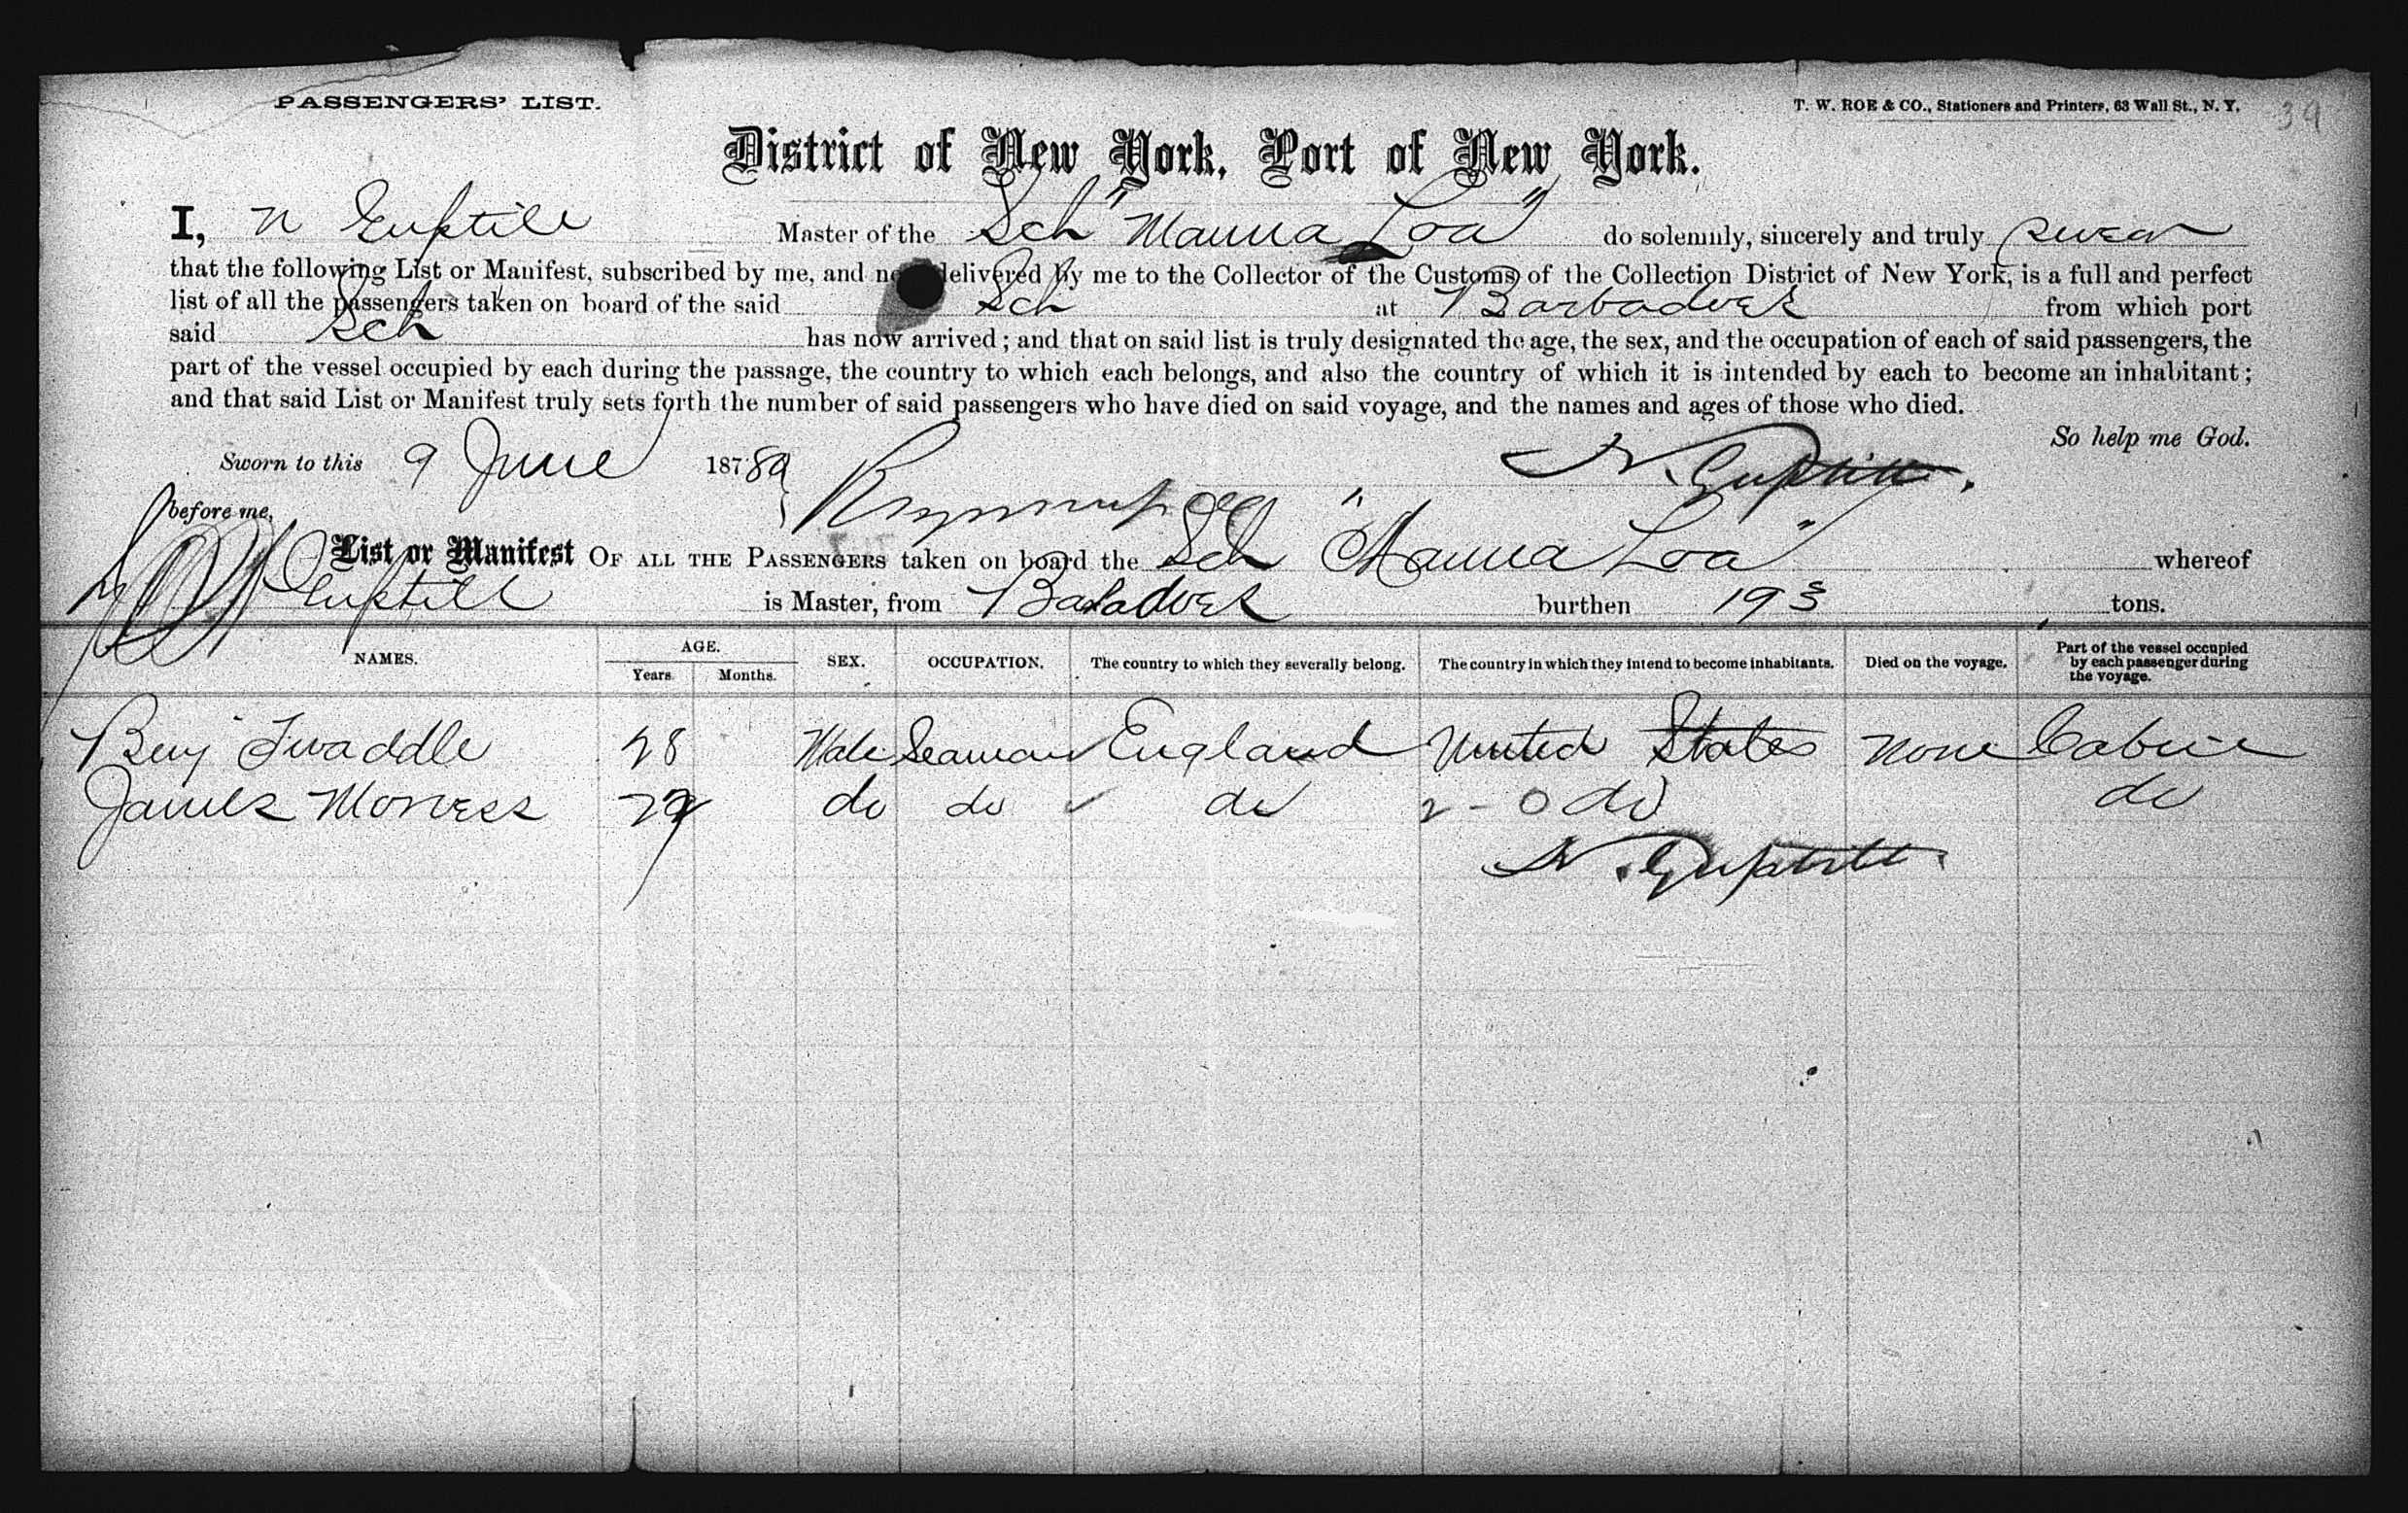 PASSENGERS' LIST.
T. W. ROE & CO., Stationers and Printers, 63 Wall St., N. Y.
39
District of New York, Port of New York.
I, N Guptill Master of the Sch "Mauna Loa" do solemnly, sincerely and truly swear
that the following List or Manifest, subscribed by me, and now delivered by me to the Collector of the Customs of the Collection District of New York, is a full and perfect
list of all the passengers taken on board of the said Sch at Barbadoes from which port
said Sch has now arrived; and that on said list is truly designated the age, the sex, and the occupation of each of said passengers, the
part of the vessel occupied by each during the passage, the country to which each belongs, and also the country of which it is intended by each to become an inhabitant;
and that said List or Manifest truly sets forth the number of said passengers who have died on said voyage, and the names and ages of those who died.
So help me God.
Sworn to this 9 June 18789 N. Guptill.
before me,
List or Manifest OF ALL THE PASSENGERS taken on board the Sch "Mauna Loa" whereof
Guptill is Master, from Barbadoes burthen 193 tons.
NAMES. AGE. Years. Months. SEX. OCCUPATION. The country to which they severally belong. The country in which they intend to become inhabitants. Died on the voyage. Part of the vessel occupied by each passenger during the voyage.
Benj Twaddle 28 Male Seaman England United States None Cabin
James do do do 2-0 do do
N. Guptill.